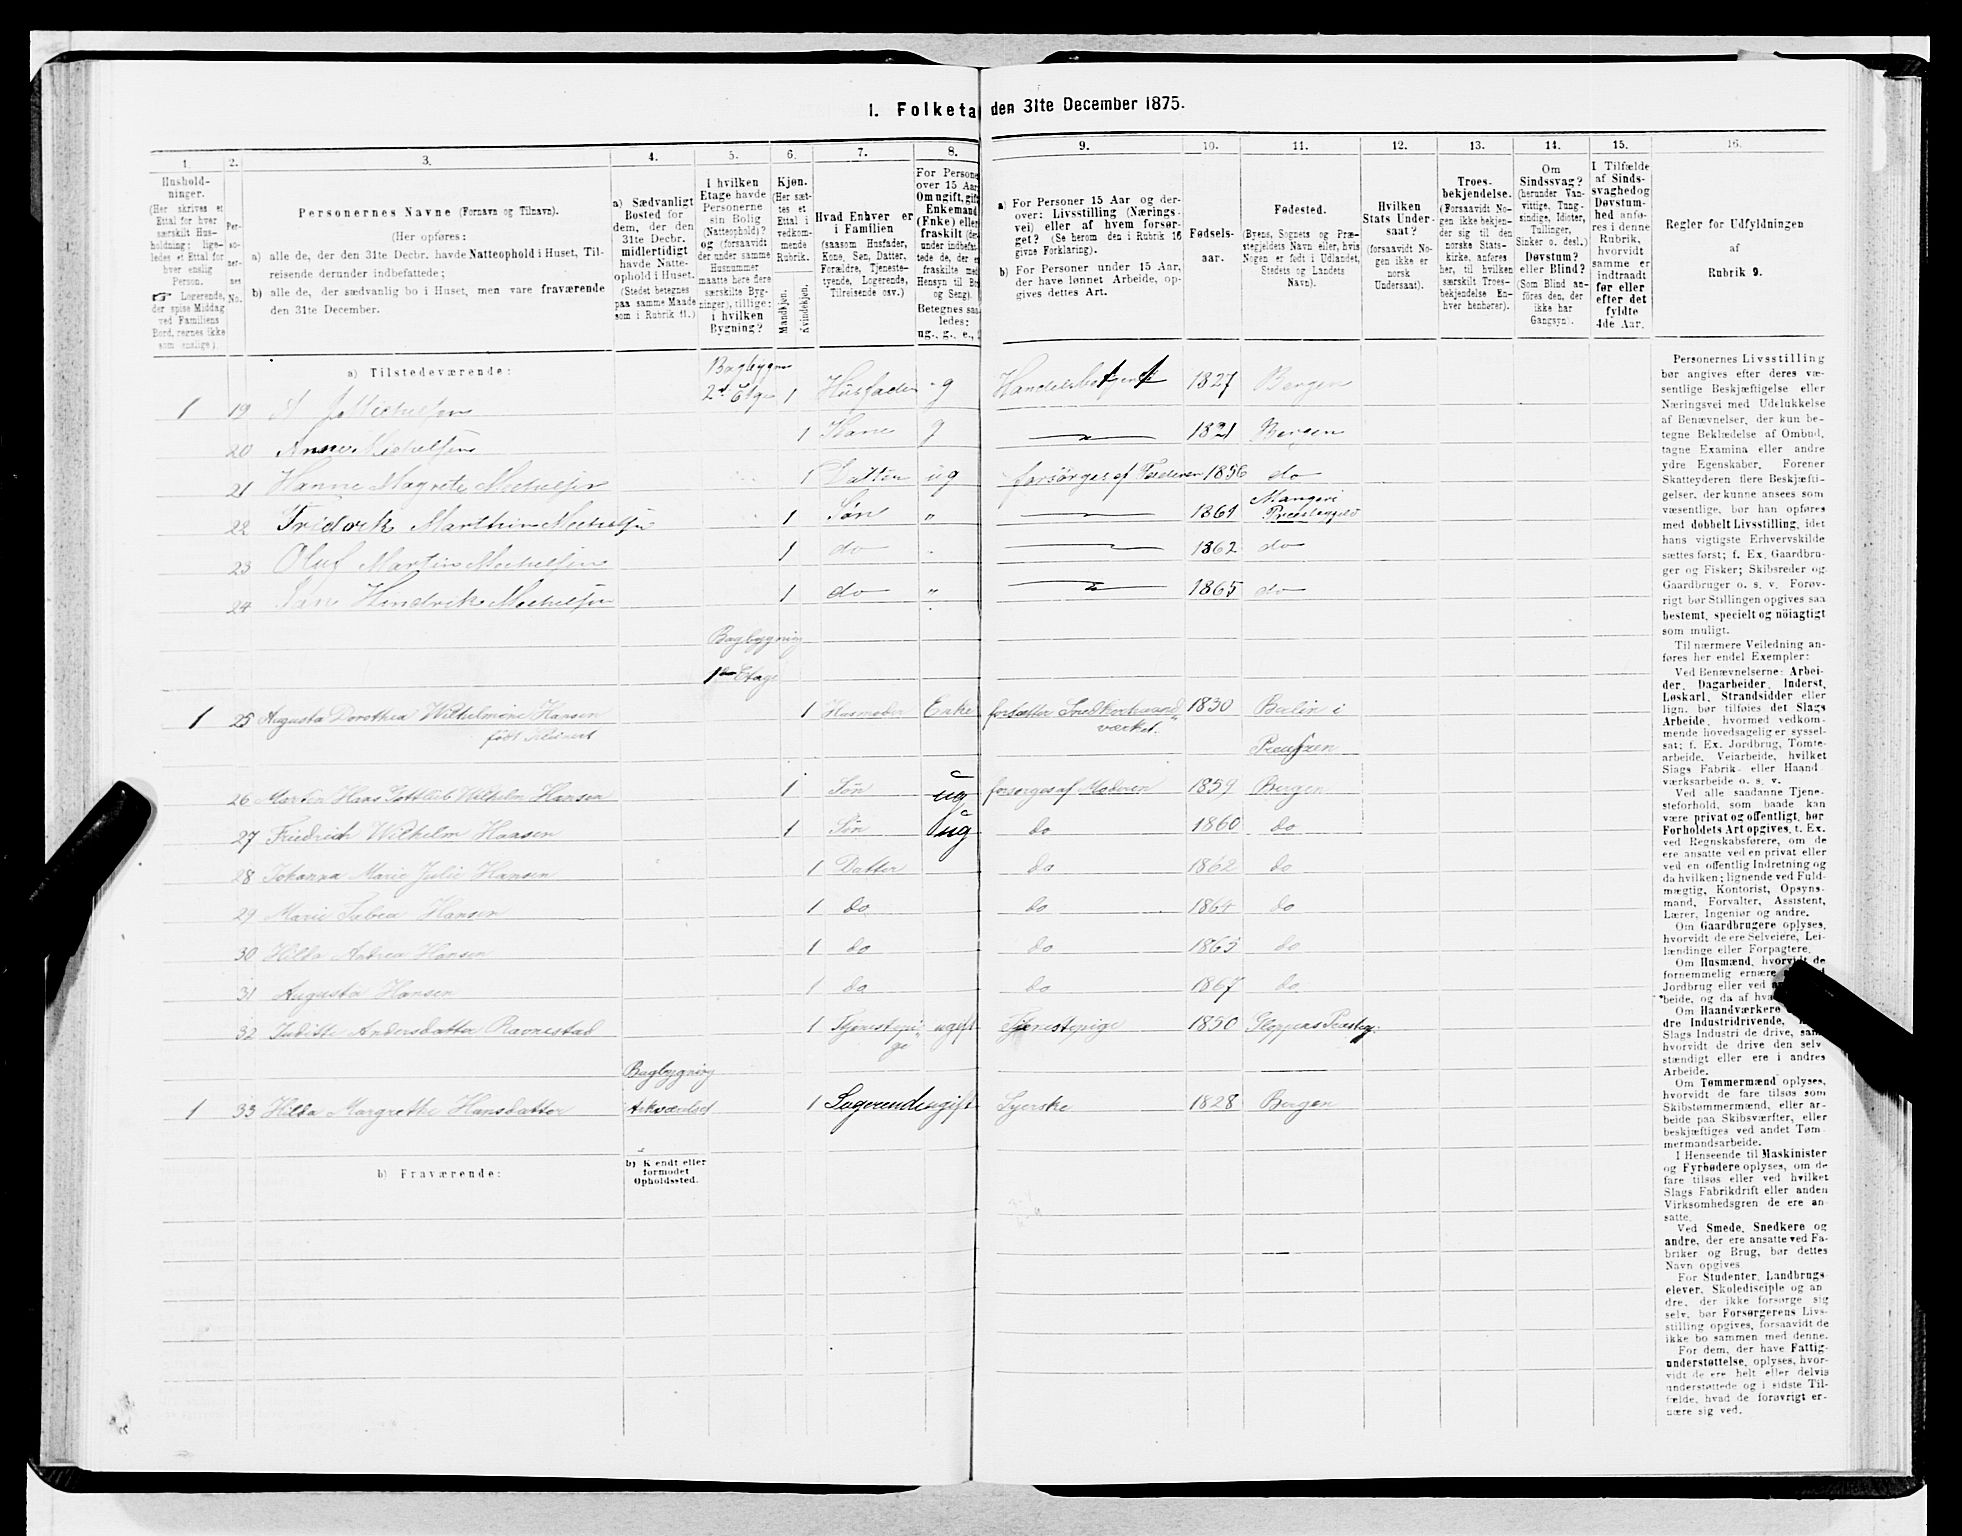 1. Folketa den 31te December 1875.
1. 2. 3. 4. 5. 6. 7. 8. 9. 10. 11. 12. 13. 14. 15. 16.
Hushold-
ninger.
(Her skrives et
Ettal for hver
særskilt Hus-
holdning; lige-
ledes et Ettal for
hver enslig
Person.
☞ Logerende,
der spise Middag
ved Familiens
Bord, regnes ikke
som enslige).
Per-
so-
ner-
nes
No.
Personernes Navne (Fornavn og Tilnavn).
(Her opføres:
a) alle de, der den 31te Decbr. havde Natteophold i Huset, Til-
reisende derunder indbefattede;
b) alle de, der sædvanlig bo i Huset, men vare fraværende
den 31te December.
a) Sædvanligt
Bosted for
dem, der den
31te Decbr.
midlertidigt
havde Natte-
ophold i Huset.
(Stedet betegnes
paa samme Maade
som i Rubrik 11.)
I hvilken
Etage havde
Personerne
sin Bolig
(Natteophold)?
og (forsaavidt
der under samme
Husnummer
maatte høre flere
særskilte Byg-
ninger), tillige:
i hvilken
Bygning?
Kjøn.
(Her sæt-
tes et
Ettal i
vedkom-
mende
Rubrik.
Mandkjøn.
Kvindekjøn.
Hvad Enhver er
i Familien
(saasom Husfader,
Kone, Søn, Datter,
Forældre, Tjeneste-
tyende, Logerende,
Tilreisende osv.)
For Persone
over 15 Aar
Om ugift, gift
Enkemand
(Enke) eller
fraskilt (de
under indbefat-
tede de, der e
fraskilte med
Hensyn til Bo
og Seng).
Betegnes saa
ledes:
ug., g., e.,
a) For Personer 15 Aar og der-
over: Livsstilling (Nærings-
vei) eller af hvem forsør-
get? (Se herom den i Rubrik 16
givne Forklaring).
b) For Personer under 15 Aar,
der have lønnet Arbeide, op-
gives dettes Art.
Fødsels-
aar.
Fødested.
(Byens, Sognets og Præ-
stegjeldets Navn eller, hvis
Nogen er født i Udlandet,
Stedets og Landets
Navn).
Hvilken
Stats Under-
saat?
(forsaavidt No-
gen ikke er
norsk
Undersaat).
Troes-
bekjendelse.
(Forsaavidt No-
gen ikke bekjen-
der sig til den
norske Stats-
kirke, anføres
her, til hvilken
særskilt Troes-
bekjendelse En-
hver henhører).
Om
Sindssvag?
(herunder Van-
vittige, Tung-
sindige, Idioter,
Tullinger,
Sinker o. desl.)
Døvstum?
eller Blind?
(Som Blind an-
føres den, der
ikke har
Gangsyn).
I Tilfælde
af Sinds-
svaghed og
Døvstum-
hed anfø-
res i denne
Rubrik,
hvorvidt
samme er
indtraadt
før eller
efter det
fyldte
4de Aar.
Regler for Udfyldningen
af
Rubrik 9.
a) Tilstedeværende:
Bagbygn
1 19 Michelsen 2d Etge 1 Husfader g 1827 Bergen
20 Anne Michelsen 1 Kone g 1821 Bergen
21 Hanne Magrete Michelsen 1 Datter ug forsørges af Faderen 1856 do
22 Fridork Marthin Michelsen 1 Søn " 1861 Mangers Præstegjeld
23 Oluf Martin Michelsen 1 do 1862 do
24 Hendrik Michelsen 1 do " 1865 do
Bagbygning
1ste Etage
1 25 Augusta Dorothea Wilhelmine Hansen 1 Husmoder Enke fortsætter Snedkerhaand- 1830 Berlin i
født værket. Preuszen
26 Martin Hans Gottlieb Wilhelm Hansen 1 Søn ug forsørges af Moderen 1859 Bergen
27 Friedrich Wilhelm Hansen 1 Søn ug do 1860 do
28 Johanna Marie Julie Hansen 1 Datter do 1862 do
29 Marie Hansen 1 do do 1864 do
30 Hilda Andrea Hansen 1 do do 1865 do
31 Augusta Hansen 1 do do 1867 do
32 Andersdatter Ravnestad 1 Tjenestepi- ugift Tjenestepige 1850 Gloppens Præstegj:
ge
Bagbygning
1 33 Hilda Margrethe Hansdatter 1 Logerende ugift Syerske 1828 Bergen
b) Fraværende:
b) Kjendt eller
formodet
Opholdssted.
Personernes Livsstilling
bør angives efter deres væ-
sentlige Beskjæftigelse eller
Næringsvei med Udelukkelse
af Benævnelser, der kun be-
tegne Beklædelse af Ombud,
tagne Examina eller andre
ydre Egenskaber. Forener
Skatteyderen flere Beskjæfti-
gelser, der kunne ansees som
væsentlige, bør han opføres
med dobbelt Livsstilling, idet
hans vigtigste Erhvervskilde
sættes først; f. Ex. Gaardbru-
ger og Fisker; Skibsreder og
Gaardbruger o. s. v. Forøv-
rigt bør Stillingen opgives saa
bestemt, specielt og nöiagtigt
som muligt.
Til nærmere Veiledning an-
føres her endel Exempler:
Ved Benævnelserne: Arbei-
der, Dagarbeider, Inderst,
Løskarl, Strandsidder eller
lign. bør tilføies det Slags
Arbeide, hvormed vedkom-
mende hovedsagelig er syssel-
sat; f. Ex. Jordbrug, Tomte-
arbeide, Veiarbeide, hvilket
Slags Fabrik- eller Haand-
værksarbeide o. s. v.
Ved alle saadanne Tjene-
steforhold, som baade kan
være privat og offentligt, bør
Forholdets Art opgives, t. Ex.
ved Regnskabsførere, om de
ere ansatte ved en privat eller
ved en offentlig Indretning og
da hvilken; lignende ved Fuld-
mægtig, Kontorist, Opsyns-
mand, Forvalter, Assistent,
Lærer, Ingeniør og andre.
Om Gaardbrugere oplyses,
hvorvidt de ere Selveiere, Lei-
lændinge eller Forpagtere.
Om Husmænd, hvorvidt de
fornemmelig ernære
Jordbrug eller ved
beide, og da af hva
Om Haandværkere
dre Industridrivende,
Slags Industri de drive, samt
hvorvidt de drive den selv-
stændigt eller ere i andres
Arbeide.
Om Tømmermænd oplyses,
hvorvidt de fare tilsøs som
Skibstømmermænd, eller ar-
beide paa Skibsværfter, eller
beskjæftiges ved andet Tøm-
mermandsarbeide.
I Henseende til Maskinister
og Fyrbødere oplyses, om de
fare tilsøs eller ved hvilket
Slags Fabrikdrift eller anden
Virksomhedsgren de ere an-
satte.
Ved Smede, Snedkere og
andre, der ere ansatte ved Fa-
briker og Brug, bør dettes
Navn opgives
For Studenter, Landbrugs-
elever, Skoledisciple og an-
dre, der ikke forsørge sig
selv, bør Forsørgerens Livs-
stilling opgives, forsaavidt de
ikke bo sammen med denne.
For dem, der have Fattig-
understøttelse, oplyses, hvor-
vidt de ere helt eller delvis
understøttede og i sidste Til-
fælde, hvad de forøvrigt er-
nære sig ved.